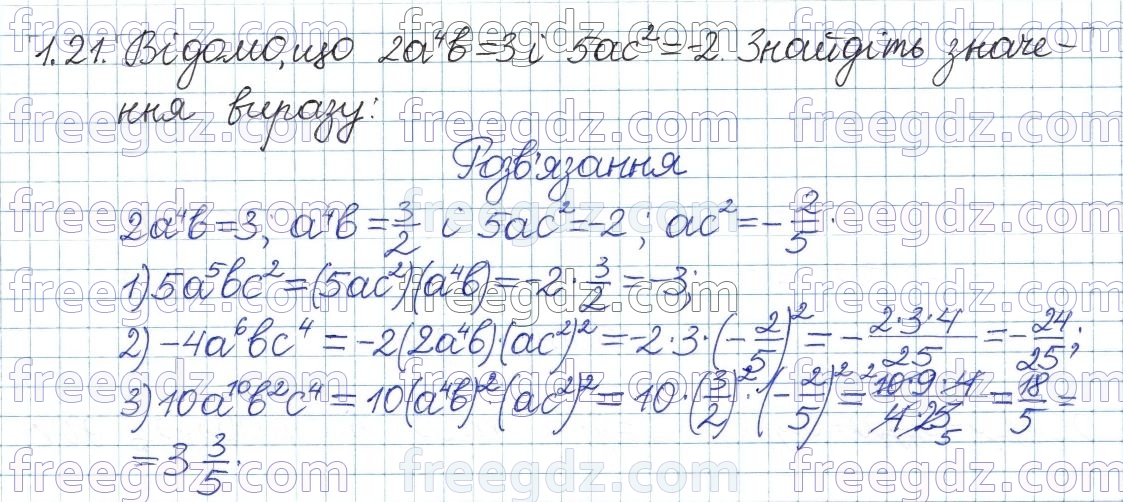 1.21. Відомо, що 2a⁴b=3 і 5ac²=-2. Знайдіть значе-
ння виразу:
Розв'язання
2a⁴b=3; a⁴b=3/2 і 5ac²=-2; ac²=-2/5.
1) 5a⁵bc²=(5ac²)(a⁴b)=-2·3/2=-3;
2) -4a⁶bc⁴=-2(2a⁴b)·(ac²)²=-2·3·(-2/5)²=-2·3·4/25=-24/25;
3) 10a¹⁰b²c⁴=10(a⁴b)²(ac²)²=10·(3/2)²·(-2/5)²=²10·9·4/4·25₅=18/5=
=3 3/5.
freegdz.com